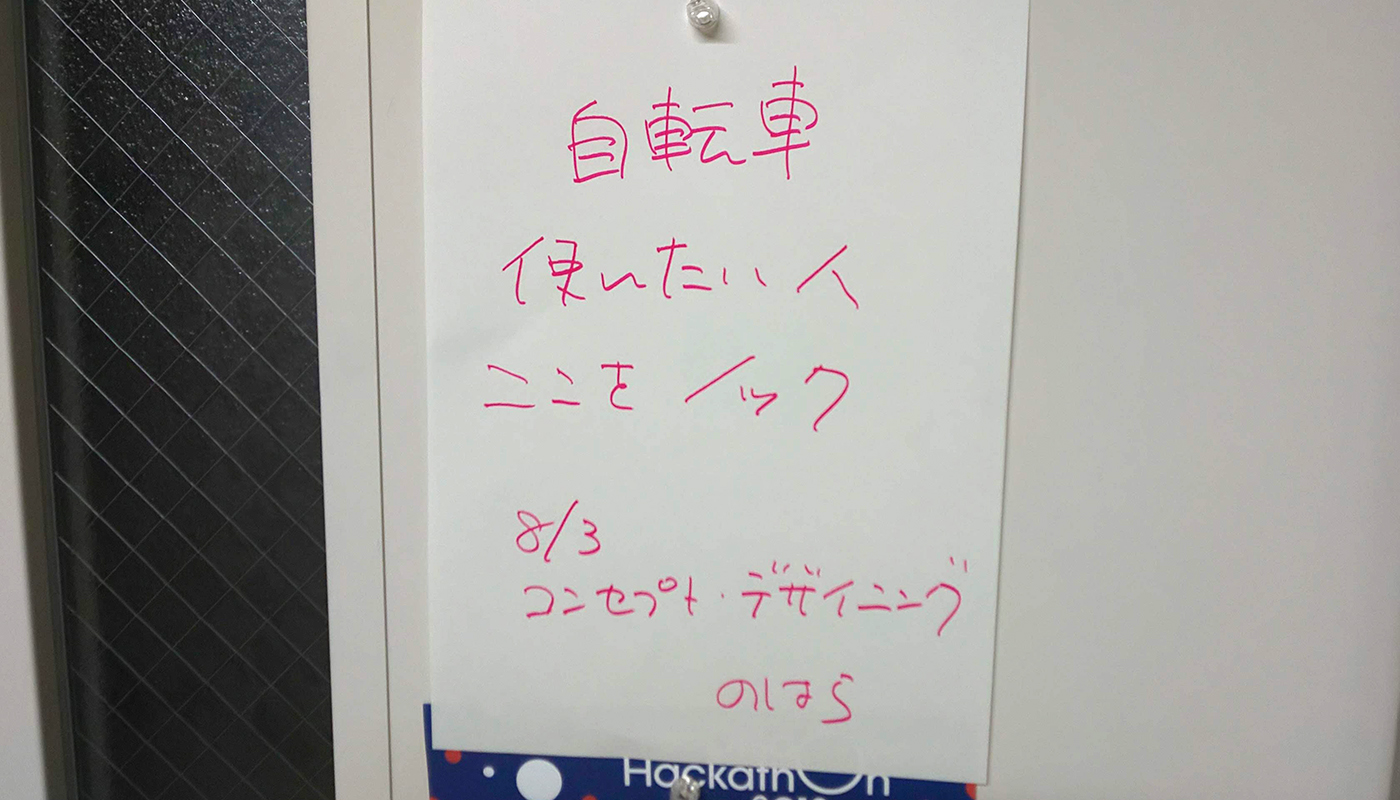 自転車
使いたい人
ここをノック
8/3
コンセプト・デザイニング
のはら
HackathOn